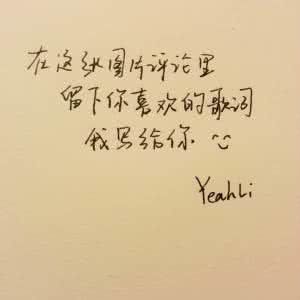 在这张图片评论里
留下你喜欢的歌词
我写给你 ︶
YeahLi